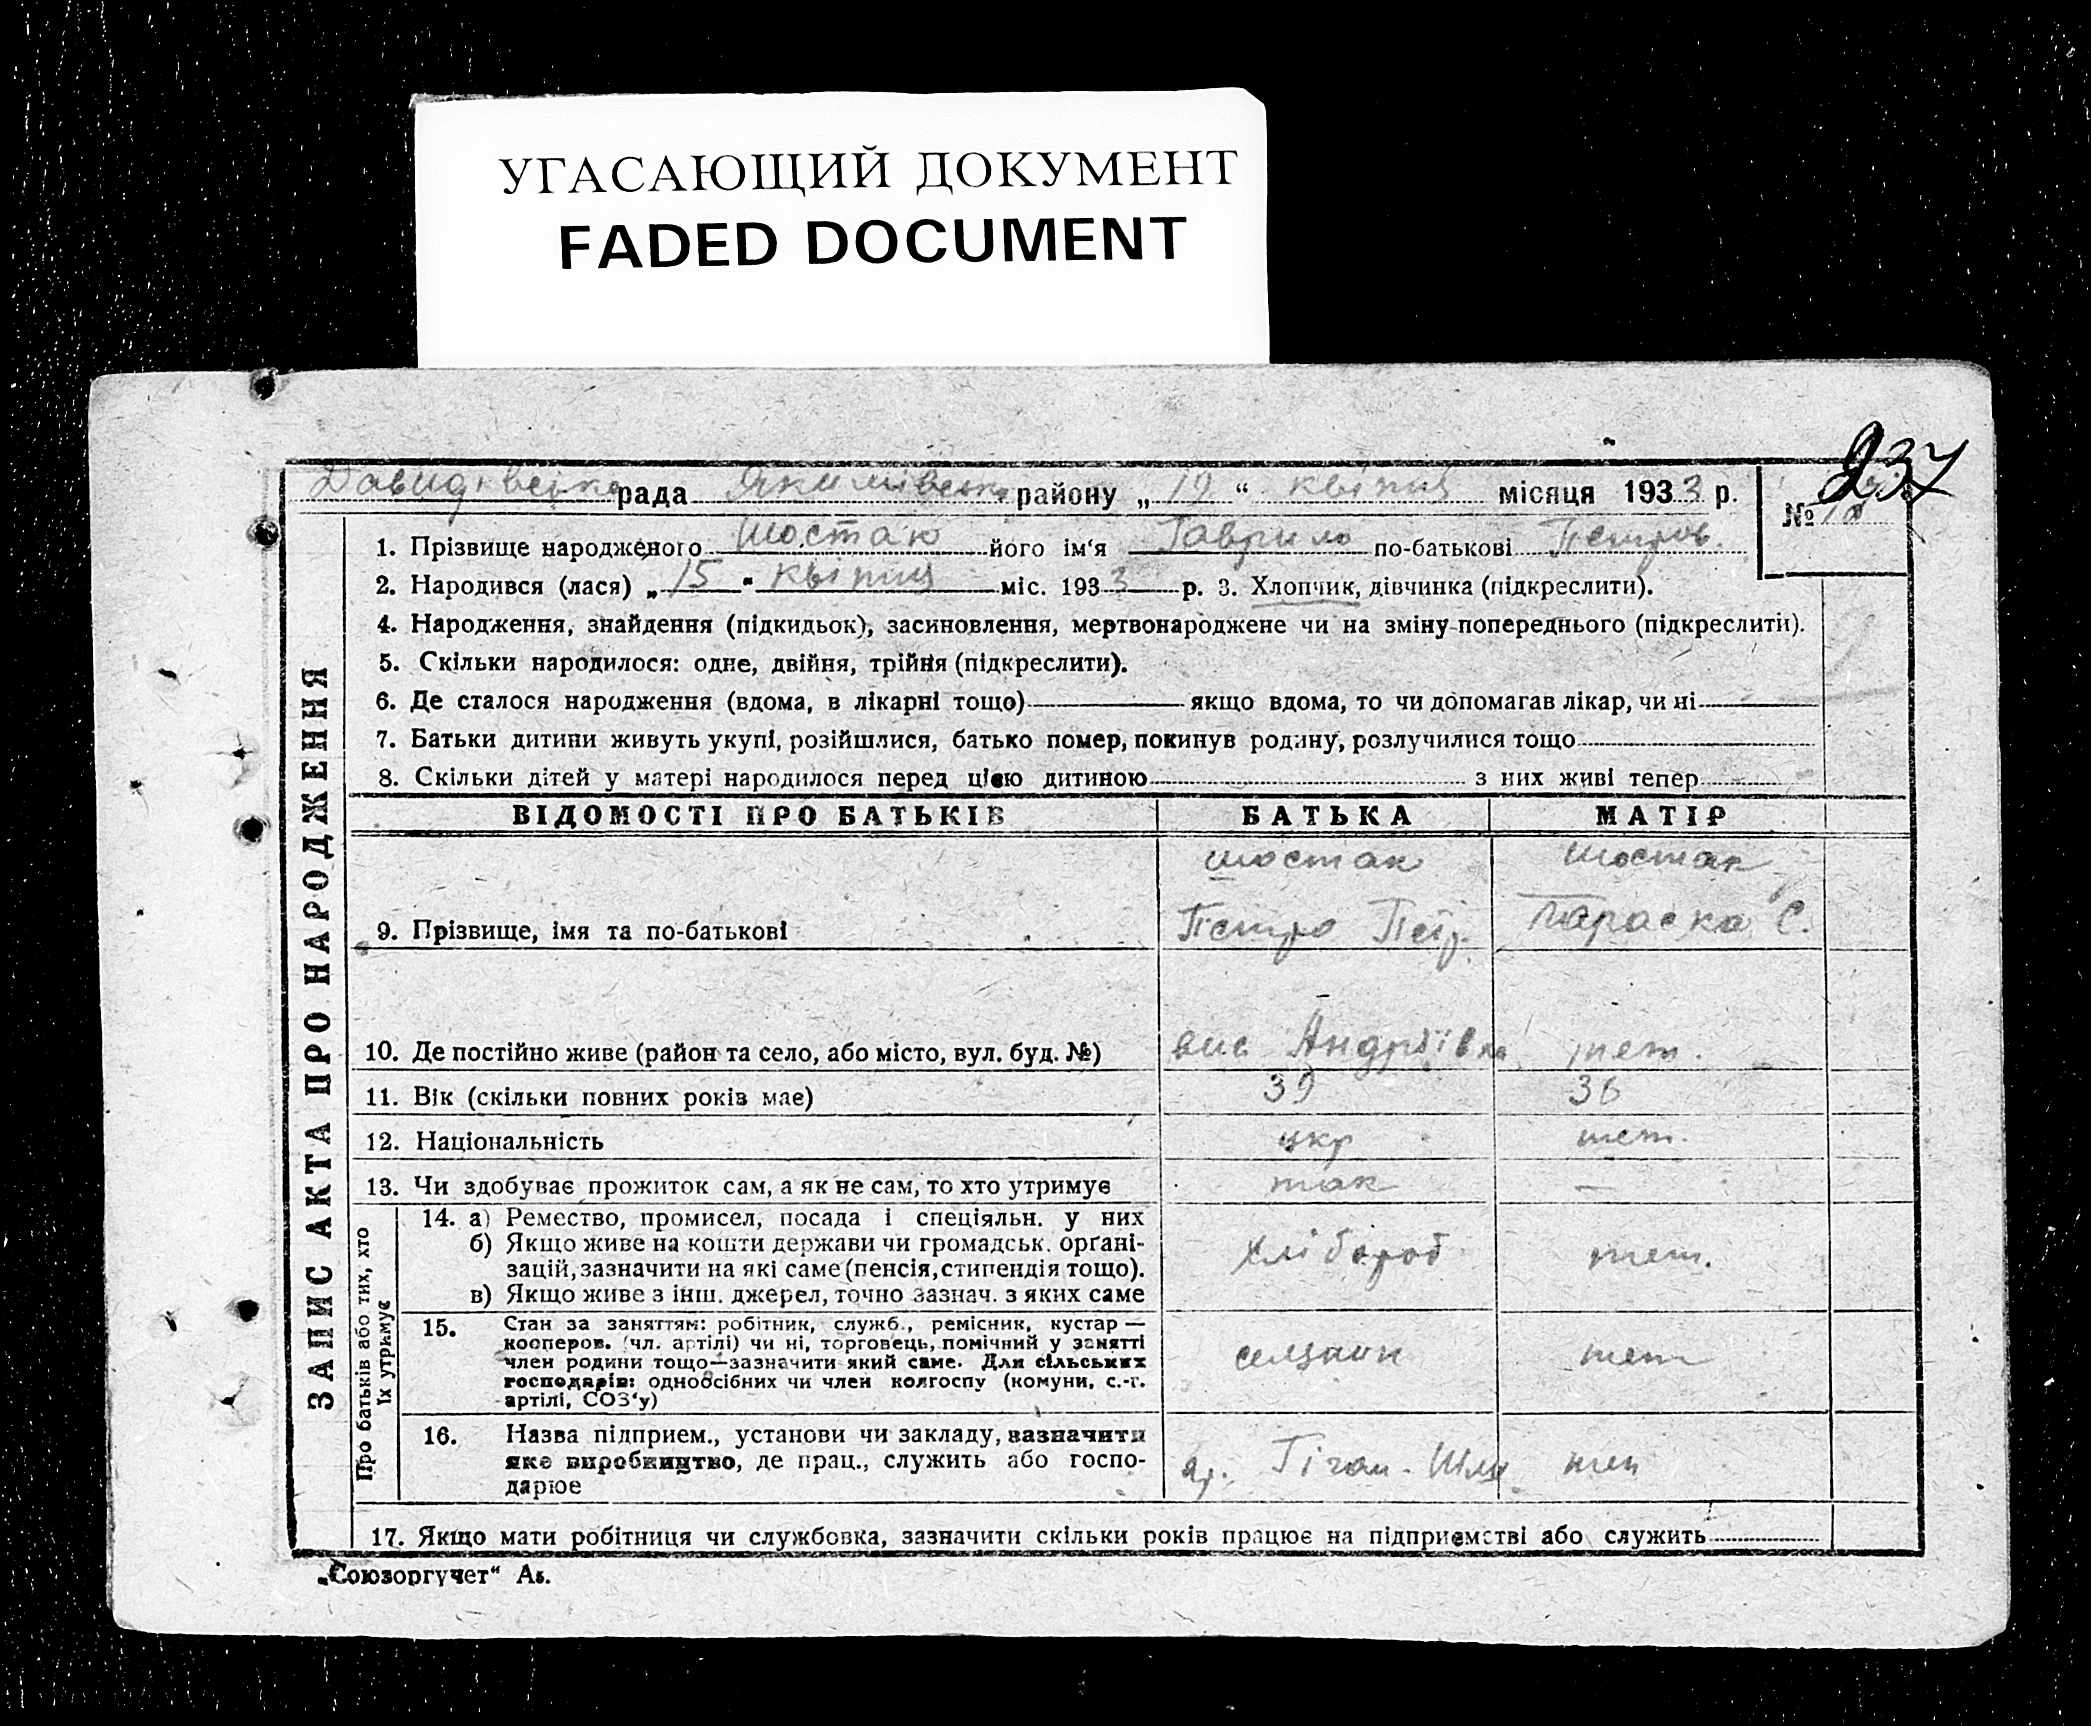 УГАСАЮЩИЙ ДОКУМЕНТ
FADED DOCUMENT
237
Давидівська рада Якимівсько району „ 19 “ квітня місяця 1933 р.
№ 18
1. Прізвище народженого Шостак його ім‘я Гаврило по-батькові Петров.
2. Народився (лася) „ 15 " квітня міс. 193 3 р. 3. Хлопчик, дівчинка (підкреслити).
4. Народження, знайдення (підкидьок), засиновлення, мертвонароджене чи на зміну попереднього (підкреслити).
5. Скільки народилося: одне, двійня, трійня (підкреслити).
6. Де сталося народження (вдома, в лікарні тощо) якщо вдома, то чи допомагав лікар, чи ні
7. Батьки дитини живуть укупі, розійшлися, батько помер, покинув родину, розлучилися тощо
8. Скільки дітей у матері народилося перед цією дитиною з них живі тепер
ЗАПИС АКТА ПРО НАРОДЖЕННЯ
ВІДОМОСТІ ПРО БАТЬКІВ БАТЬКА МАТІР
шостак шостак
9. Прізвище, імя та по-батькові Петро Петр. Параска С.
10. Де постійно живе (район та село, або місто, вул. буд. №) вис Андріївка теж.
11. Вік (скільки повних років має) 39 36
12. Національність укр теж.
13. Чи здобуває прожиток сам, а як не сам, то хто утримує так —
Про батьків або тих, хто
їх утримує
14. а) Ремество, промисел, посада і спеціяльн. у них
б) Якщо живе на кошти держави чи громадськ. органі-
зацій, зазначити на які саме (пенсія, стипендія тощо). хлібороб теж.
в) Якщо живе з інш. джерел, точно зазнач. з яких саме
15. Стан за заняттям: робітник, служб., ремісник, кустар —
кооперов. (чл. артілі) чи ні, торговець, помічний у занятті
член родини тощо—зазначити який саме. Для сільських селянин теж
господарів: одноосібних чи член колгоспу (комуни, с.-г.
артілі, СОЗ‘у)
16. Назва підприєм., установи чи закладу, зазначити
яке виробництво, де прац., служить або госпо- Гігант
дарює
17. Якщо мати робітниця чи службовка, зазначити скільки років працює на підприємстві або служить
„Союзоргучет“ А₅.